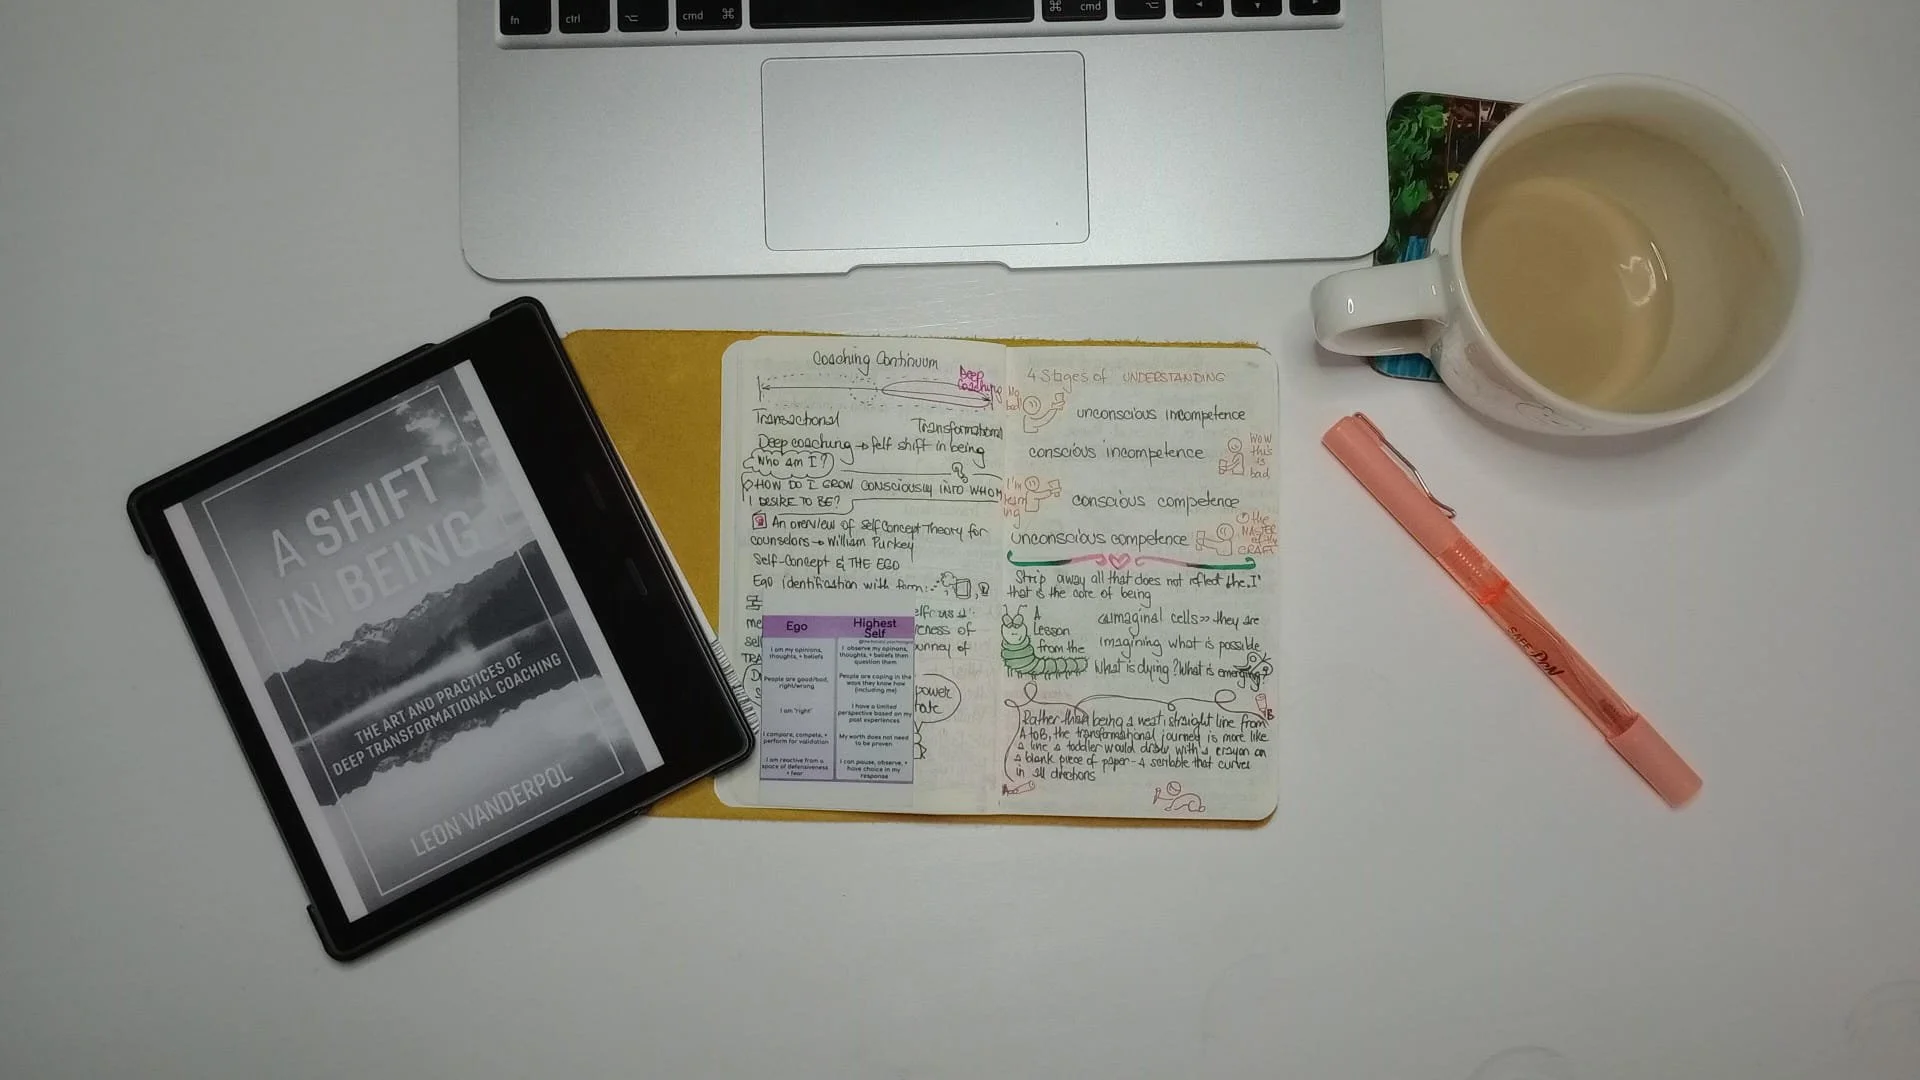 fn
ctrl
⌥
cmd ⌘
⌘ cmd
⌥
A SHIFT
IN BEING
THE ART AND PRACTICES OF
DEEP TRANSFORMATIONAL COACHING
LEON VANDERPOL
Coaching Continuum
Deep
Coaching
Transactional
Transformational
Deep coaching → felf shift in being
Who am I?
HOW DO I GROW CONSCIOUSLY INTO WHOM
I DESIRE TO BE?
An overview of Self Concept Theory for
counselors → William Purkey
Self-Concept & THE EGO
Ego identification with form:
Ego
Highest
Self
I am my opinions,
thoughts, + beliefs
I observe my opinions,
thoughts, + beliefs then
question them
People are good/bad,
right/wrong
People are coping in the
ways they know how
(including me)
I am "right"
I have a limited
perspective based on my
past experiences
I compare, compete, +
perform for validation
My worth does not need
to be proven
I am reactive from a
space of defensiveness
+ fear
I can pause, observe, +
have choice in my
response
power
4 Stages of UNDERSTANDING
No
bad
unconscious incompetence
conscious incompetence
WOW
this
is
bad
I'm
conscious competence
unconscious competence
the
MASTER
of the
CRAFT
Strip away all that does not reflect the 'I'
that is the core of being
A
Lesson
from the
imaginal cells >> they are
imagining what is possible
What is dying? What is emerging?
Rather than being a neat, straight line from
A to B, the transformational journey is more like
a line a toddler would draw with a crayon on
a blank piece of paper - a scribble that curves
in all directions
A
B
SAFE PEN